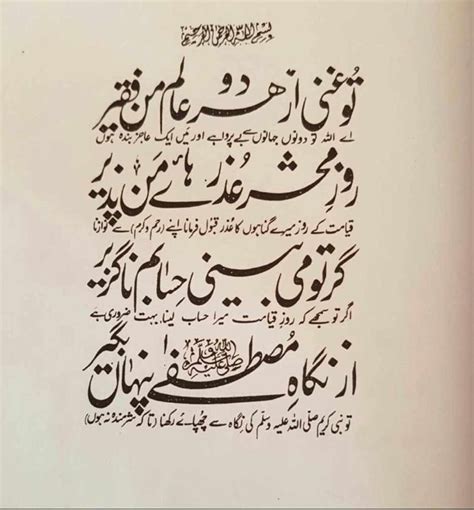 بسم اللہ الرحمن الرحیم
تو غنی از هر دو عالم من فقیر
اے اللہ تو دونوں جہانوں سے بے پرواہ ہے اور میں ایک عاجز بندہ ہوں
روزِ محشر عُذر ہائے من پذیر
قیامت کے روز میرے گناہوں کا عُذر قبول فرمانا اپنے (رحم و کرم) سے نوازنا
گر تو می بینی حسابم ناگزیر
اگر تو سمجھے کہ روزِ قیامت میرا حساب لینا بہت ضروری ہے
از نگاہِ مُصطفےٰ صلی اللہ علیہ وسلم پنہاں بگیر
تو نبی کریم صلی اللہ علیہ وسلم کی نگاہ سے چھپائے رکھنا (تا کہ شرمندہ نہ ہوں)